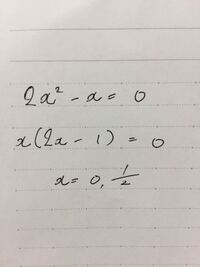 2x² - x = 0
x(2x - 1) = 0
x = 0, 1/2